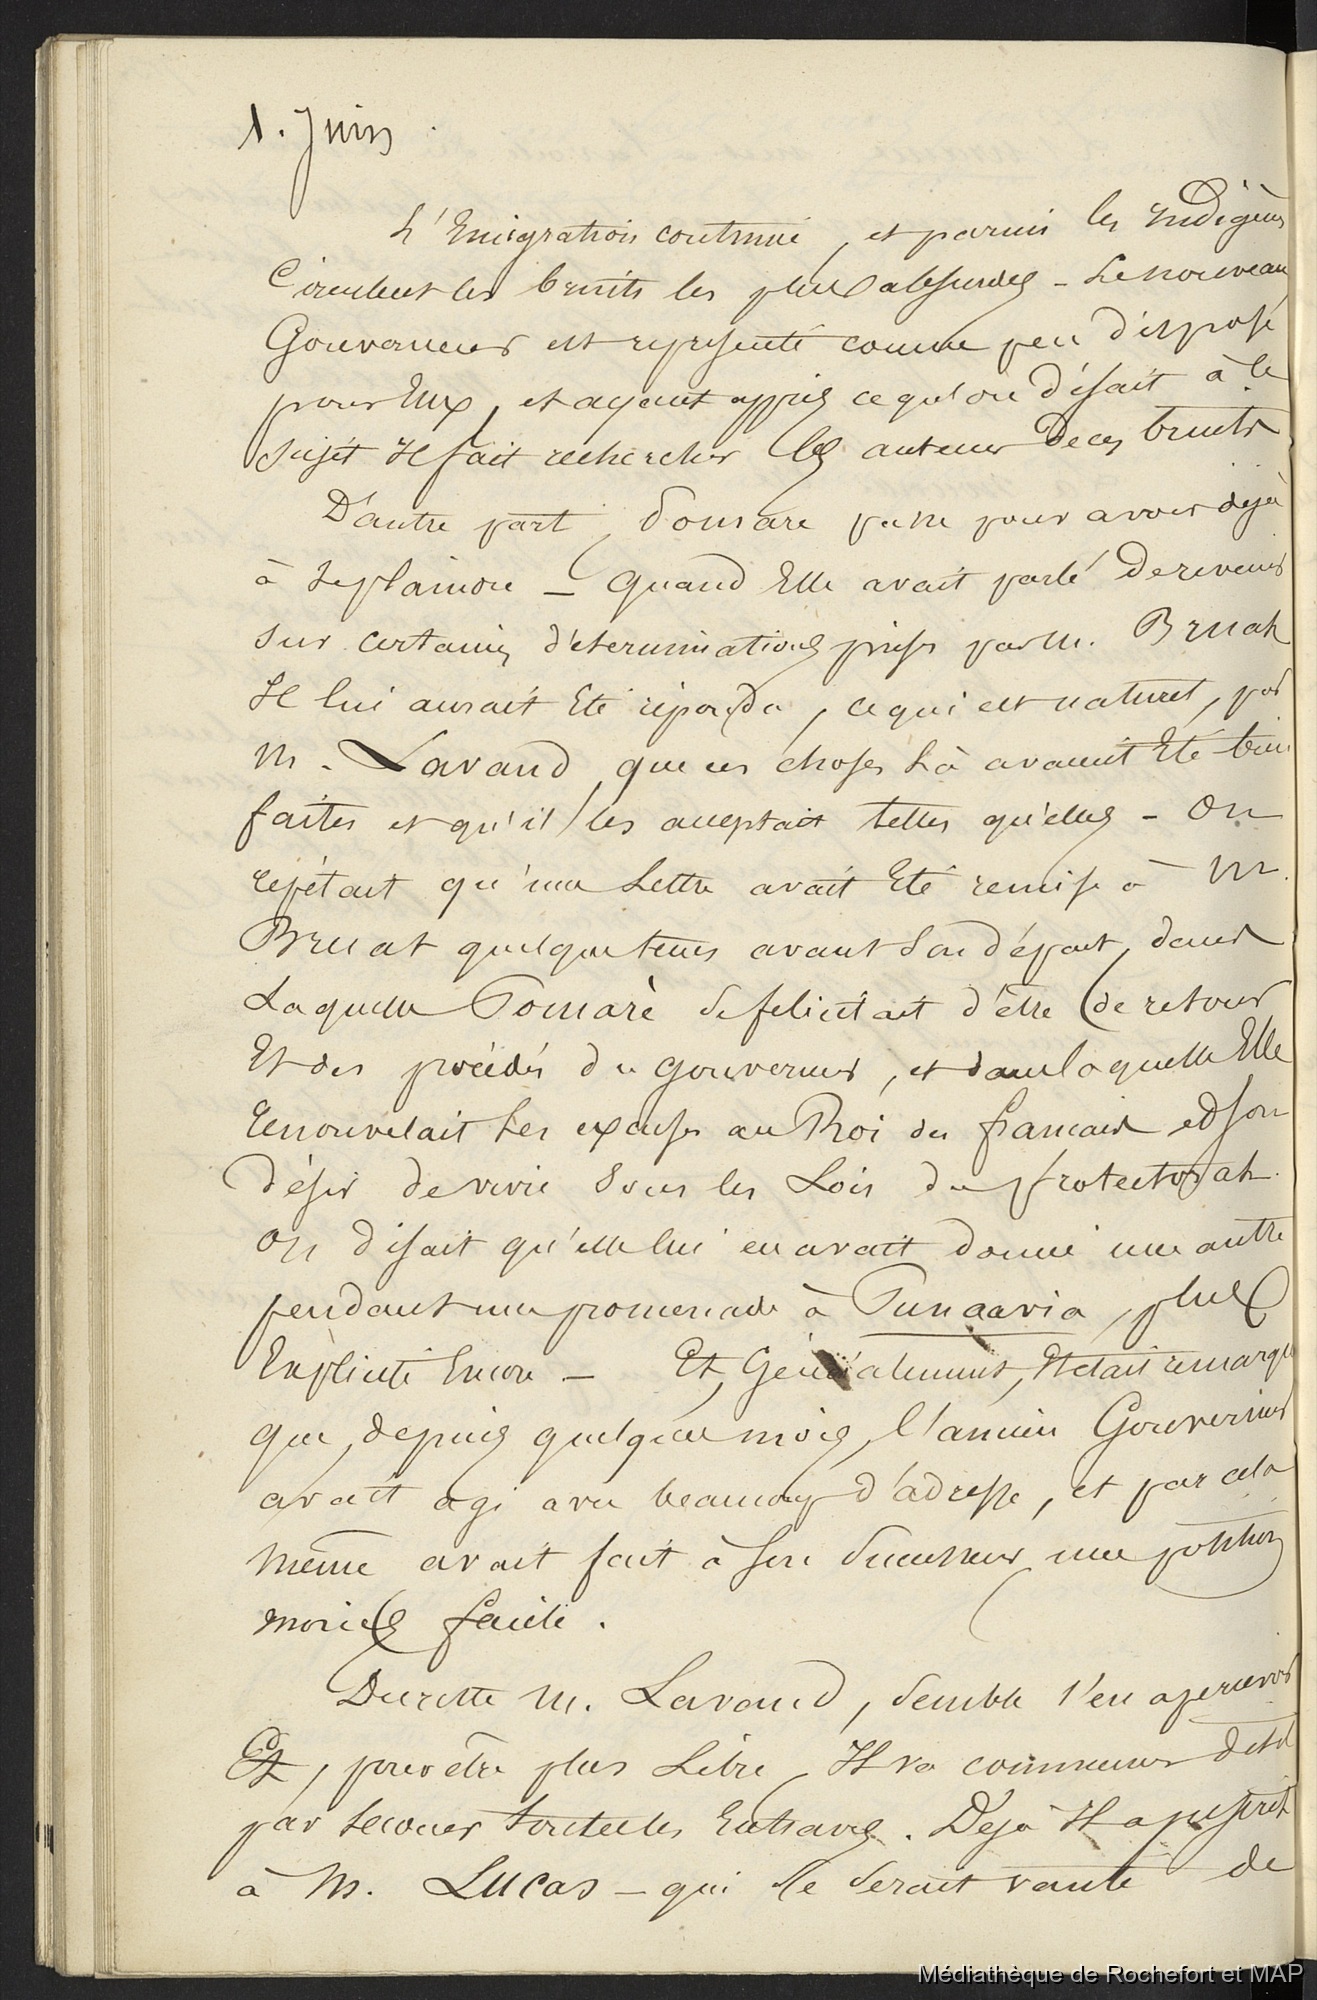 1. Juin
L'Emigration continue, et parmi les Indigènes
Circulent les bruits les plus absurdes - Le nouveau
Gouverneur est représenté comme peu disposé
pour Eux, et ayant appris ce qu'on disait à ce
sujet Il fait rechercher les auteurs de ces bruits
D'autre part, Pomare passe pour avoir déjà
à se plaindre - quand Elle avait parlé de revenir
sur certaines déterminations prises par M. Bruat
Il lui aurait Eté répondu, ce qui est naturel, par
M. Lavaud, que ces choses là avaient Eté bien
faites et qu'il les acceptait telles qu'elles - On
répétait qu'une Lettre avait Eté remise à M.
Bruat quelque tems avant son départ, dans
Laquelle Pomaré se félicitait d'être de retour
Et des procédés du gouverneur, et dans laquelle Elle
renouvelait ses excuses au Roi des français et son
désir de vivre sous les Lois du protectorat.
On disait qu'elle lui en avait donné une autre
pendant une promenade à Punaavia, plus
Explicite Encore - Et, Généralement, Il était remarqué
que, depuis quelques mois, l'ancien Gouverneur
avait agi avec beaucoup d'adresse, et par cela
même avait fait à son successeur une position
moins facile.
Du reste M. Lavaud, semble s'en apercevoir
Et, pour être plus Libre, Il va commencer dit-il
par secouer toutes les Entraves. Déjà Il a
à M. Lucas - qui se serait vanté de
Médiathèque de Rochefort et MAP